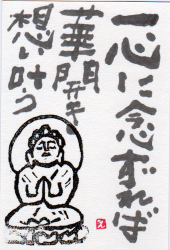 一心に念ずれば
華開き
想い叶う
え